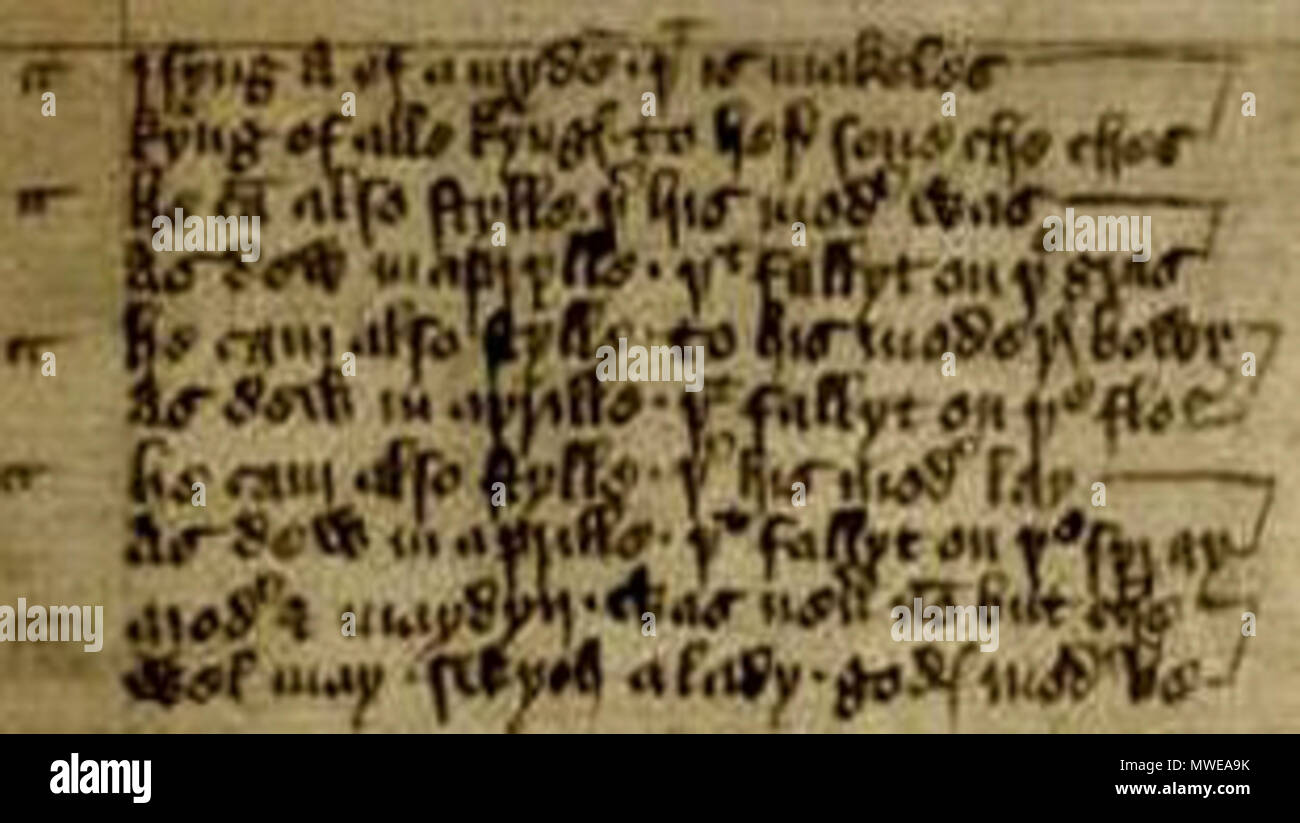 I syng A of a myden · þt is makeles
kyng of alle kynges to here sone che ches
he cam also stylle þer his moder was
as dew in aprylle · þt fallyt on þe gras
he cam also stylle to his moderes bowr
as dew in aprille · þt fallyt on þe flour
he cam also stylle · þer his moder lay
as dew in aprille · þt fallyt on þe spray
moder & maydyn · was neuer non but che
wel may swych a lady · godes moder be
alamy
alamy
Image ID: MWEA9K
www.alamy.com